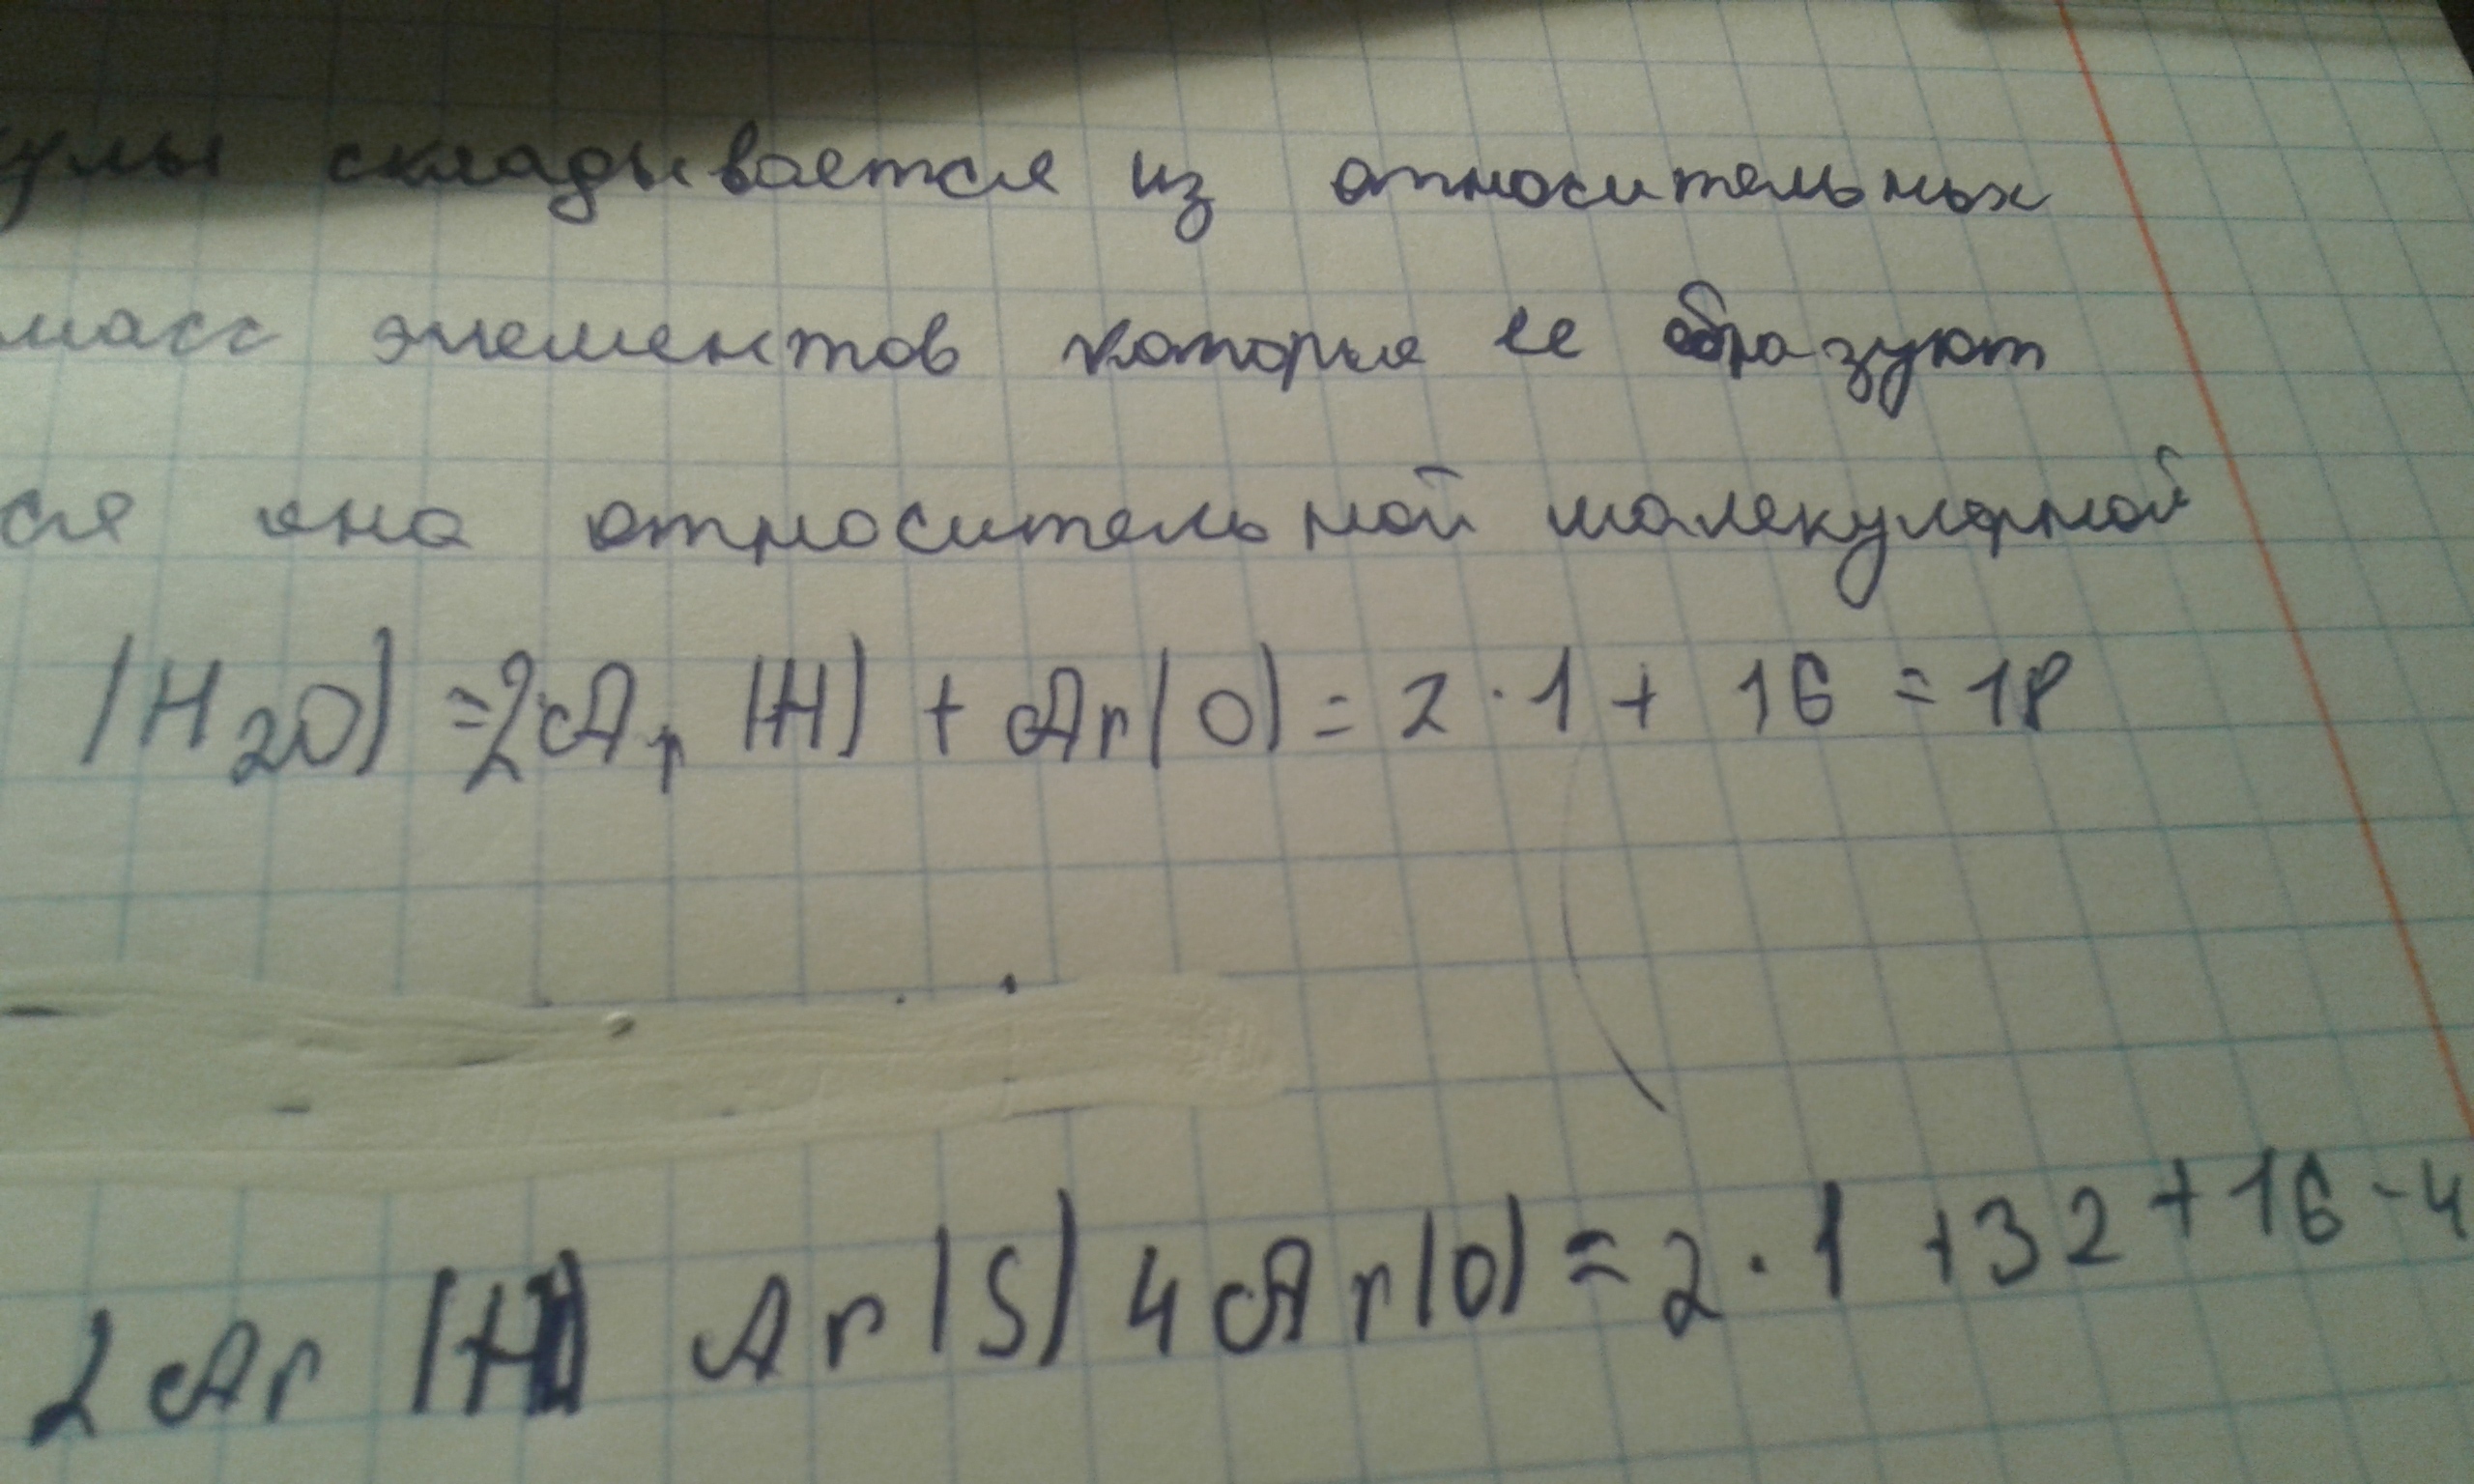 улы складывается из относительных
масс элементов которые ее образуют
ся она относительной молекулярной
(H₂O) = 2Ar (H) + Ar(O) = 2 · 1 + 16 = 18
2Ar (H) Ar(S) 4Ar(O) = 2 · 1 + 32 + 16 - 4